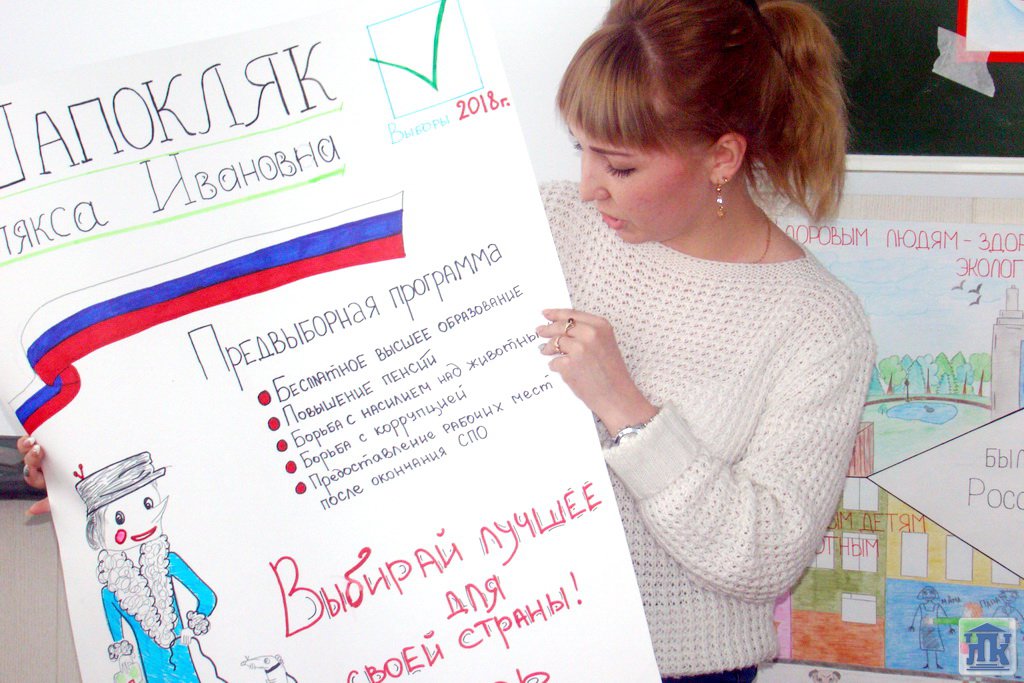 ШАПОКЛЯК
Ивановна
Выборы 2018г.
Предвыборная программа
Бесплатное высшее образование
Повышение пенсий
Борьба с насилием над животны
Борьба с коррупцией
Предоставление рабочих мест
после окончания СПО
Выбирай лучшее
для
своей страны!
ДОРОВЫМ ЛЮДЯМ - ЗДОР
ЭКОЛОГ
БЫЛ
Росс
ЫМ ДЕТЯМ
ОТНЫМ
НПК